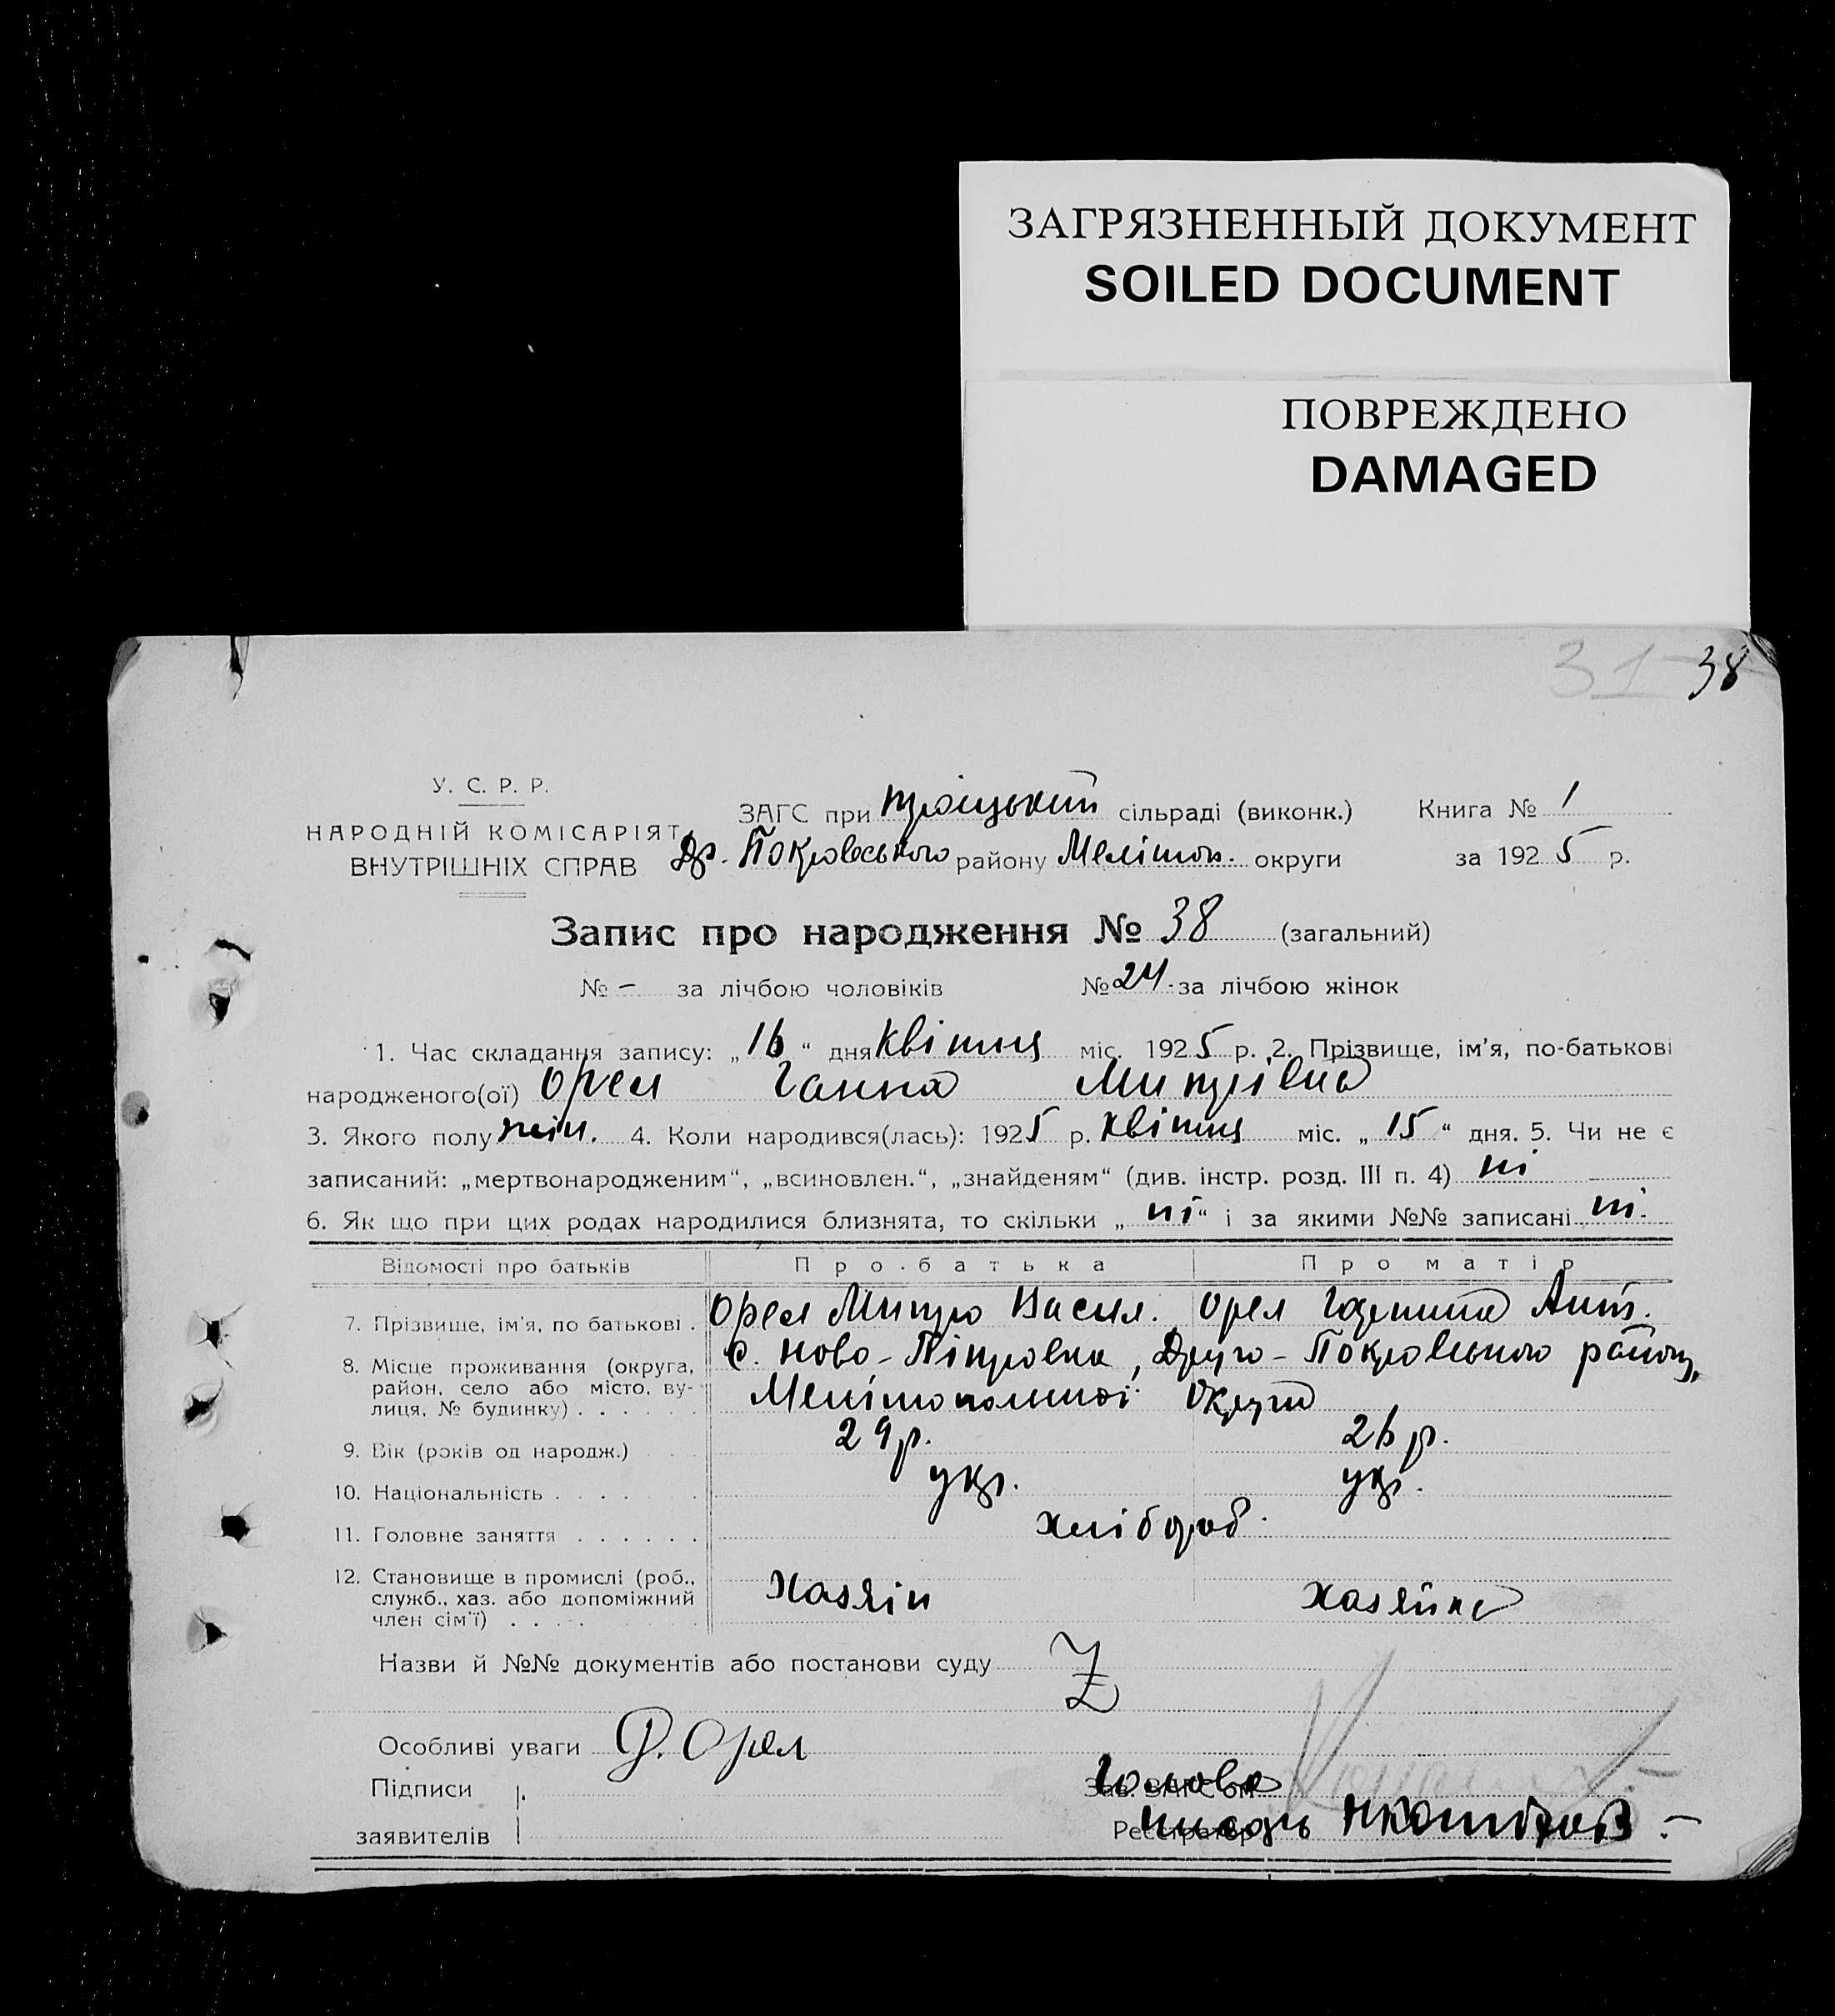 ЗАГРЯЗНЕННЫЙ ДОКУМЕНТ
SOILED DOCUMENT
ПОВРЕЖДЕНО
DAMAGED
31 38
У. С. Р. Р.
НАРОДНІЙ КОМІСАРІЯТ
ВНУТРІШНІХ СПРАВ
ЗАГС при Троіцький сільраді (виконк.) Книга № 1
Др. Покровського району Мелітоп. округи за 1925 р.
Запис про народження № 38 (загальний)
№ – за лічбою чоловіків № 24. за лічбою жінок
1. Час складання запису: „16“ дня квітня міс. 1925 р. 2. Прізвище, ім'я, по-батькові
народженого(ої) Орел Ганна Митрівна
3. Якого полу жін. 4. Коли народився(лась): 1925 р. квітня міс. „15“ дня. 5. Чи не є
записаний: „мертвонародженим“, „всиновлен.“, „знайденям“ (див. інстр. розд. III п. 4) ні
6. Як що при цих родах народилися близнята, то скільки „ні“ і за якими №№ записані ні.
Відомості про батьків Про батька Про матір
7. Прізвище, ім'я, по батькові . Орел Митро Васил. Орел Антп.
8. Місце проживання (округа, район, село або місто, вулиця, № будинку) . . . . . . с. Ново-Пітровка, Друго-Покровського району,
Округи
9. Вік (років од народж.) 29 р. 26 р.
10. Національність . . . . . . . укр. укр.
11. Головне заняття . . . . . . хлібороб.
12. Становище в промислі (роб., служб., хаз. або допоміжний член сім'ї) . . . . Хазяін Хазяйка
Назви й №№ документів або постанови суду Z
Особливі уваги Орел
Підписи Зав. ЗАГС'ом Голова
заявителів Реєстратор